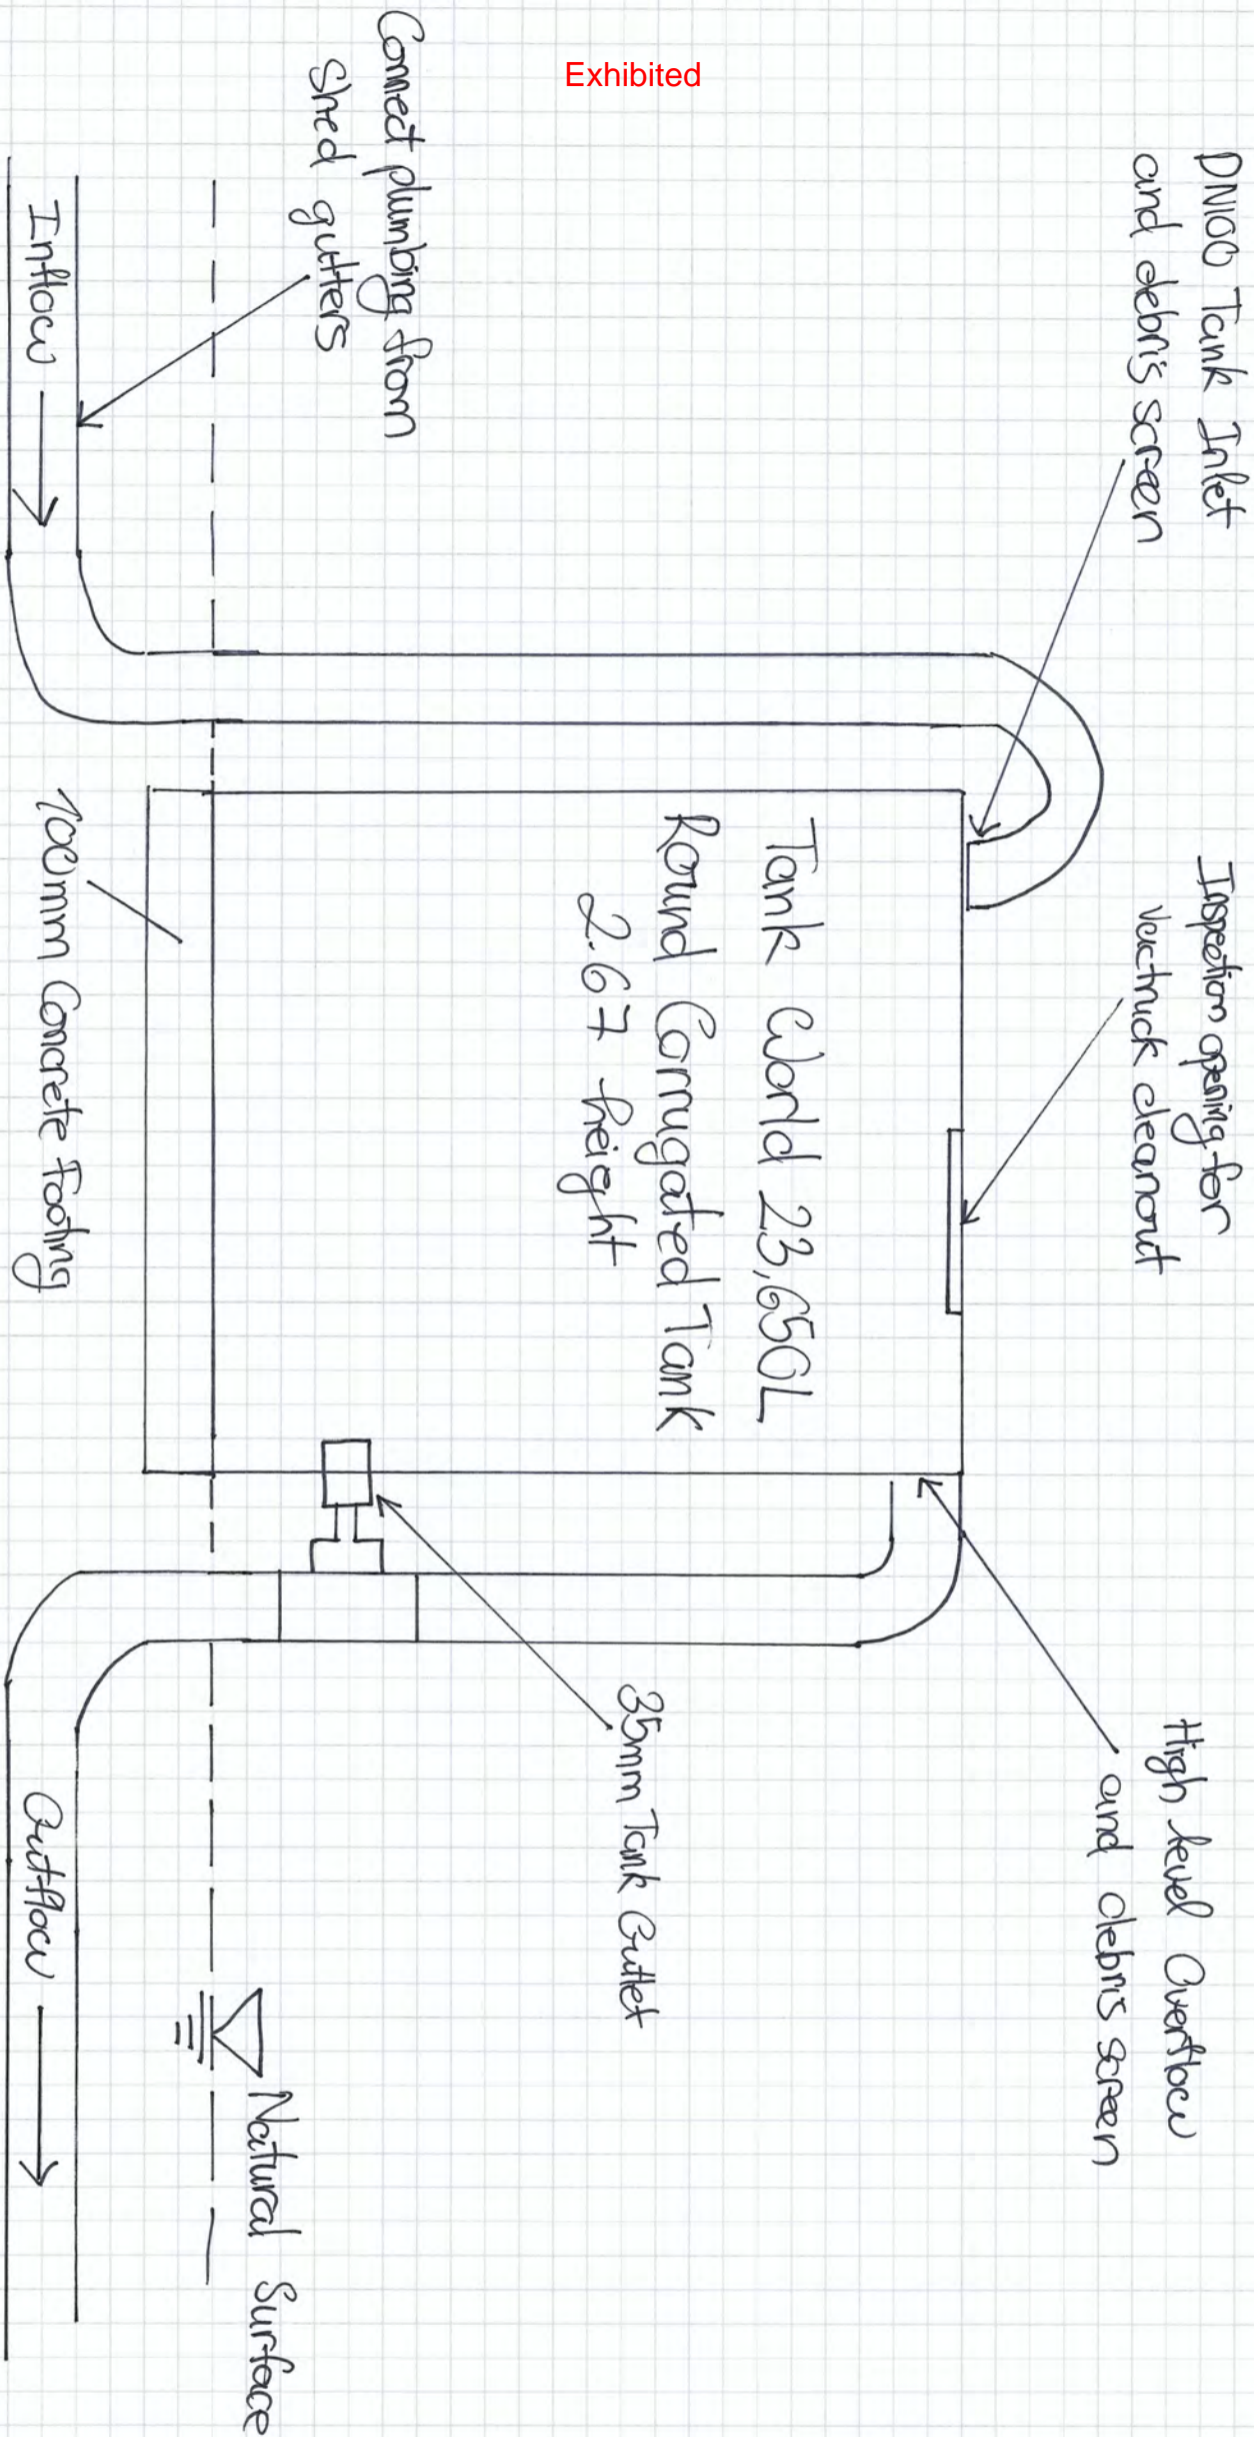 Exhibited
DN100 Tank Inlet
and debris screen
Inspection opening for
Vactruck cleanout
High level Overflow
and debris screen
Tank World 23,650L
Round Corrugated Tank
2.67 height
35mm Tank Outlet
Connect plumbing from
shed gutters
Natural Surface
Inflow
100mm Concrete Footing
Outflow